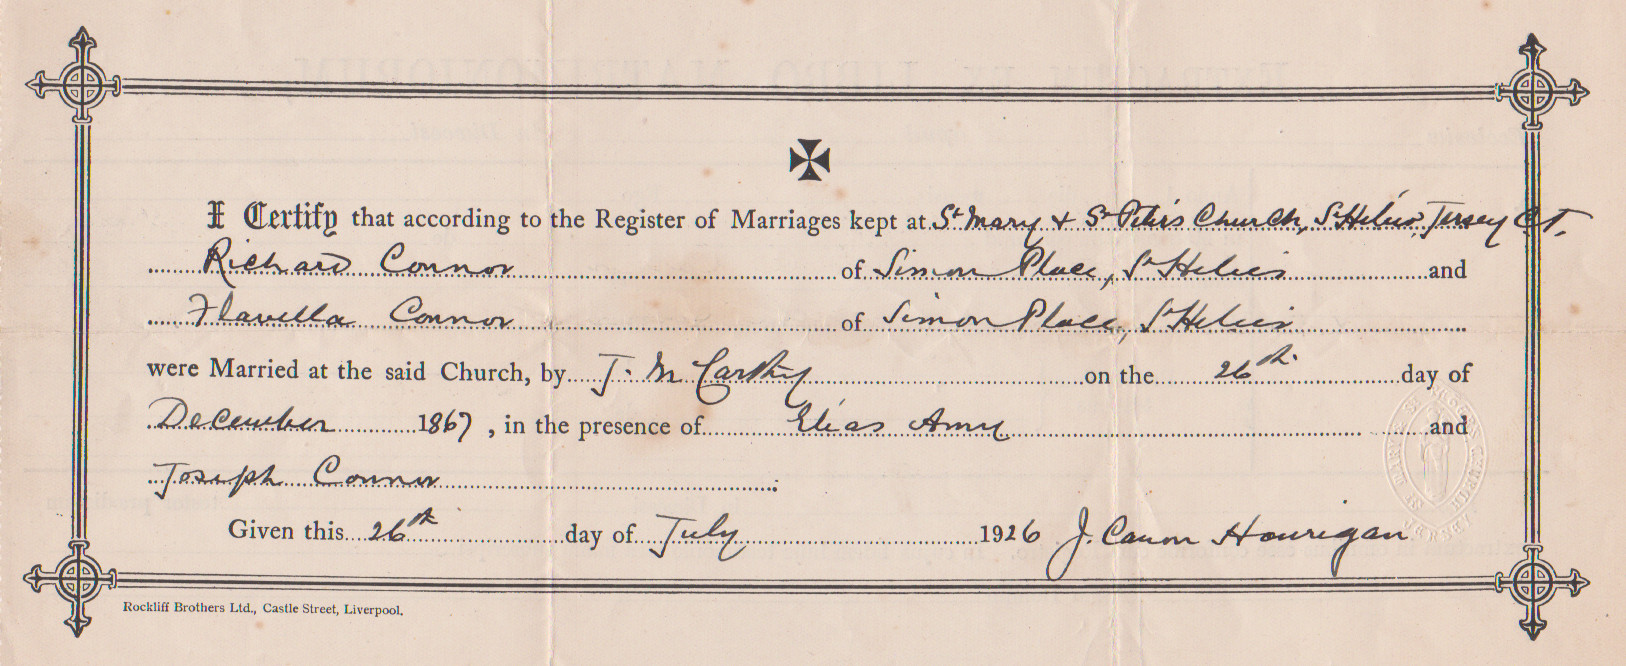 I Certify that according to the Register of Marriages kept at St Mary & St Peter's Church, St Helier, Jersey C.I.
Richard Connor of Simon Place, St Helier and
Flavella Connor of Simon Place, St Helier
were Married at the said Church, by J. McCarthy on the 26th day of
December 1867, in the presence of Elias Amy and
Joseph Connor
Given this 26th day of July 1926 J. Canon Hourigan
Rockliff Brothers Ltd., Castle Street, Liverpool.